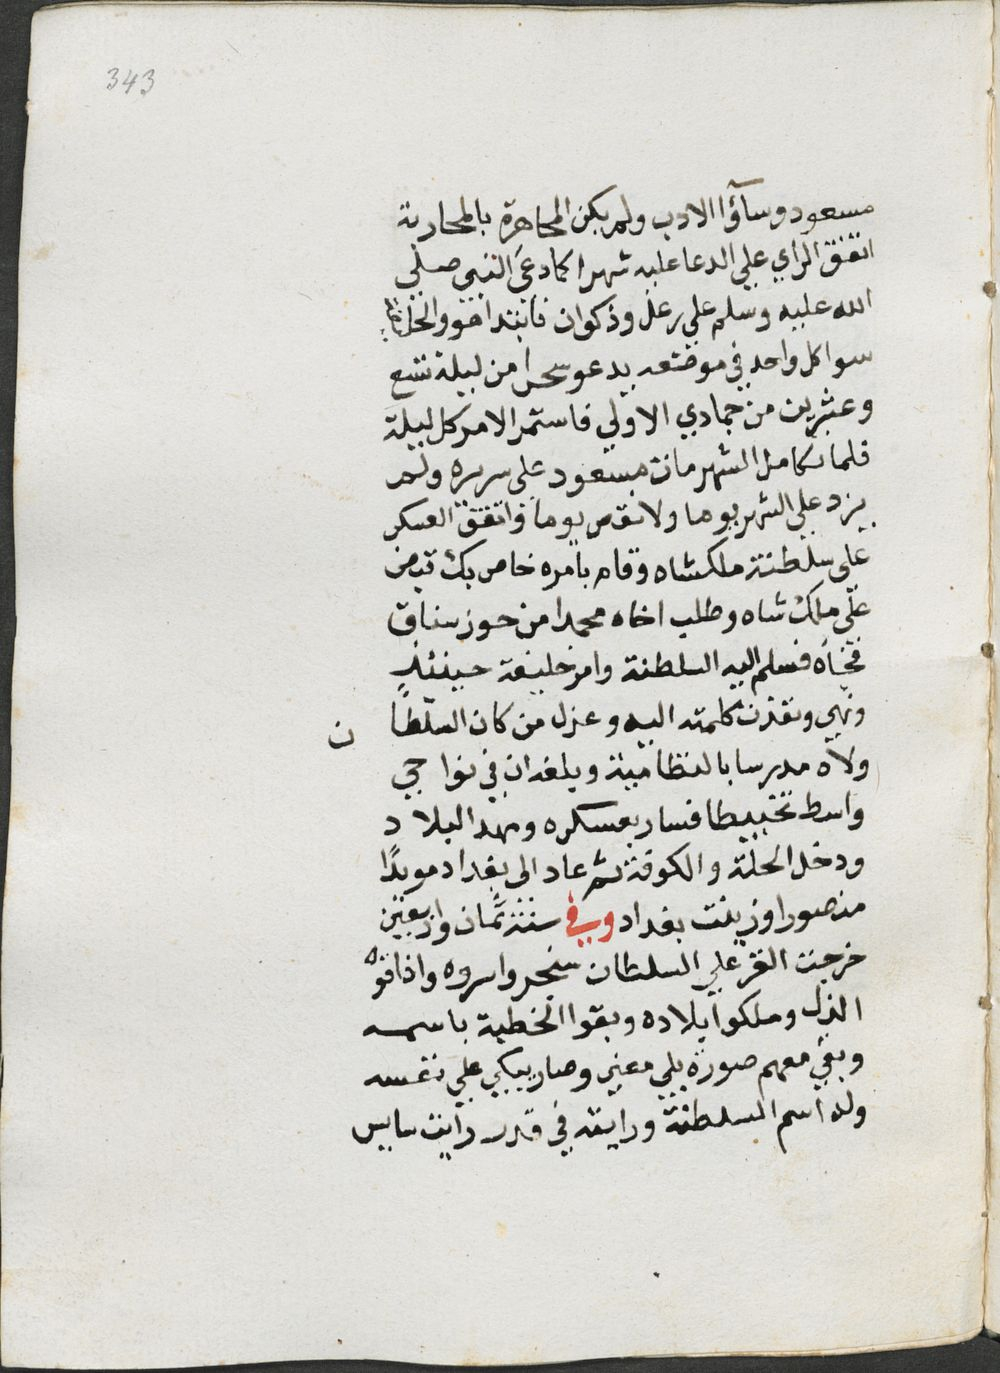 343
مسعود وسآؤا الادب ولم يكن المجاهرة بالمحاربة
اتفق الراي علي الدعا عليه شهرا كما دعي النبي صلي
الله عليه وسلم علي رعل وذكوان فابتدا هو والخليفة
سوا كل واحد في موضعه يدعو سحرا من ليلة تسع
وعشرين من جمادي الاولي فاستمر الامر كل ليلة
فلما تكامل الشهر مات مسعود علي سريره ولم
يزد علي الشهر يوما ولا نقص يوما واتفق العسكر
علي سلطنة ملكشاه وقام بامره خاص بك ثم قبض
علي ملك شاه وطلب اخاه محمدا من خوزستان
فجاه فسلم اليه السلطنة وامر خليفة حينئذٍ
ونهي ونفذت كلمته اليه وعزل من كان السلطا
ن
ولاه مدرسا بالنظامية وبلغه ان في نواحي
واسط تخبيطا فسار بعسكره ومهد البلاد
ودخل الحلة والكوفة ثم عاد الى بغداد مويدًا
منصورا وزينت بغداد وفي سنة ثمان واربعين
خرجت الغز علي السلطان سنجر واسروه واذاقوه
الذل وملكوا بلاده وبقوا الخطبة باسمه
وبقي معهم صورة بلي معني وصار يبكي علي نفسه
وله اسم السلطنة وراتبه في قدر راتب سايس